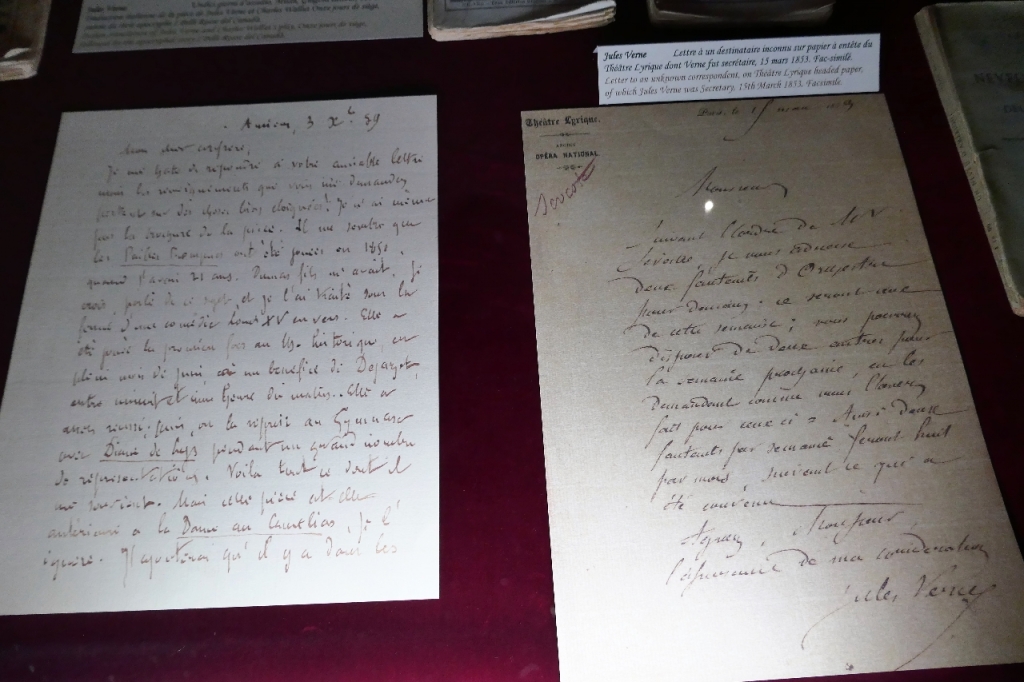 Jules Verne
Jules Verne Lettre à un destinataire inconnu sur papier à entête du
Théâtre Lyrique dont Verne fut secrétaire, 15 mars 1853. Fac-similé.
Letter to an unknown correspondent, on Théâtre Lyrique headed paper,
of which Jules Verne was Secretary, 15th March 1853. Facsimile.
Amiens, 3 Xbre 89
Mon cher confrère,
Je me hâte de répondre à votre aimable lettre
mais les renseignements que vous me demandez
portent sur des choses bien éloignées! Je n'ai même
pas la brochure de la pièce. Il me semble que
les Pailles Rompues ont été jouées en 1850,
quand j'avais 21 ans. Dumas fils m'avait, je
crois, parlé de ce sujet, et je l'ai traité sous la
forme d'une comédie Louis XV en vers. Elle a
été jouée la première fois au Th. historique, en
plein mois de juin, à un bénéfice de Dejazet,
entre minuit et une heure du matin. Elle a
assez réussi; puis, on la reprit au Gymnase
avec Diane de Lys pendant un grand nombre
de représentations. Voilà tout ce dont il
me souvient. Mais cette pièce est-elle
antérieure à la Dame au Camélias, je l'
ignore. J'ajouterai qu'il y a dans les
Théâtre Lyrique.
OPÉRA NATIONAL
Monsieur
Suivant l'ordre de Mr
Seveste, je vous adresse
deux fauteuils d'orchestre
pour demain; ce seront ceux
de cette semaine; vous pourrez
disposer de deux autres pour
la semaine prochaine, en les
demandant comme vous l'avez
fait pour ceux-ci. Ainsi deux
fauteuils par semaine feront huit
par mois, suivant ce qui a
été convenu
Agréez, Monsieur,
l'assurance de ma considération
Jules Verne